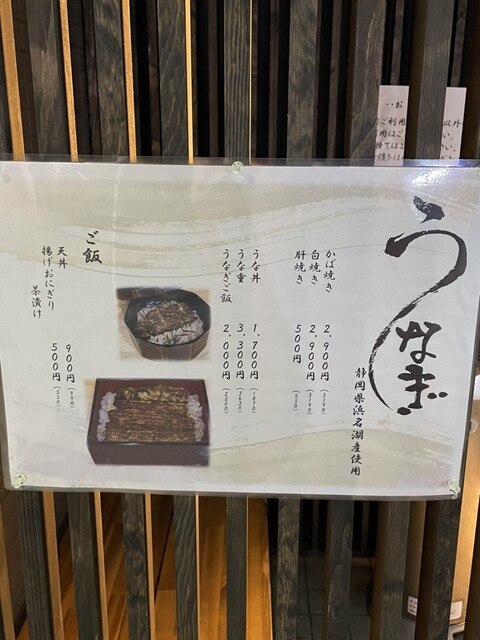 うなぎ
静岡県浜名湖産使用
かば焼き 2,900円(3190)
白焼き 2,900円(3190)
肝焼き 500円(550)
うな丼 1,700円(1870)
うな重 3,300円(3630)
うなぎご飯 2,000円(2200)
ご飯
天丼 900円(990)
揚げおにぎり茶漬け 500円(550)